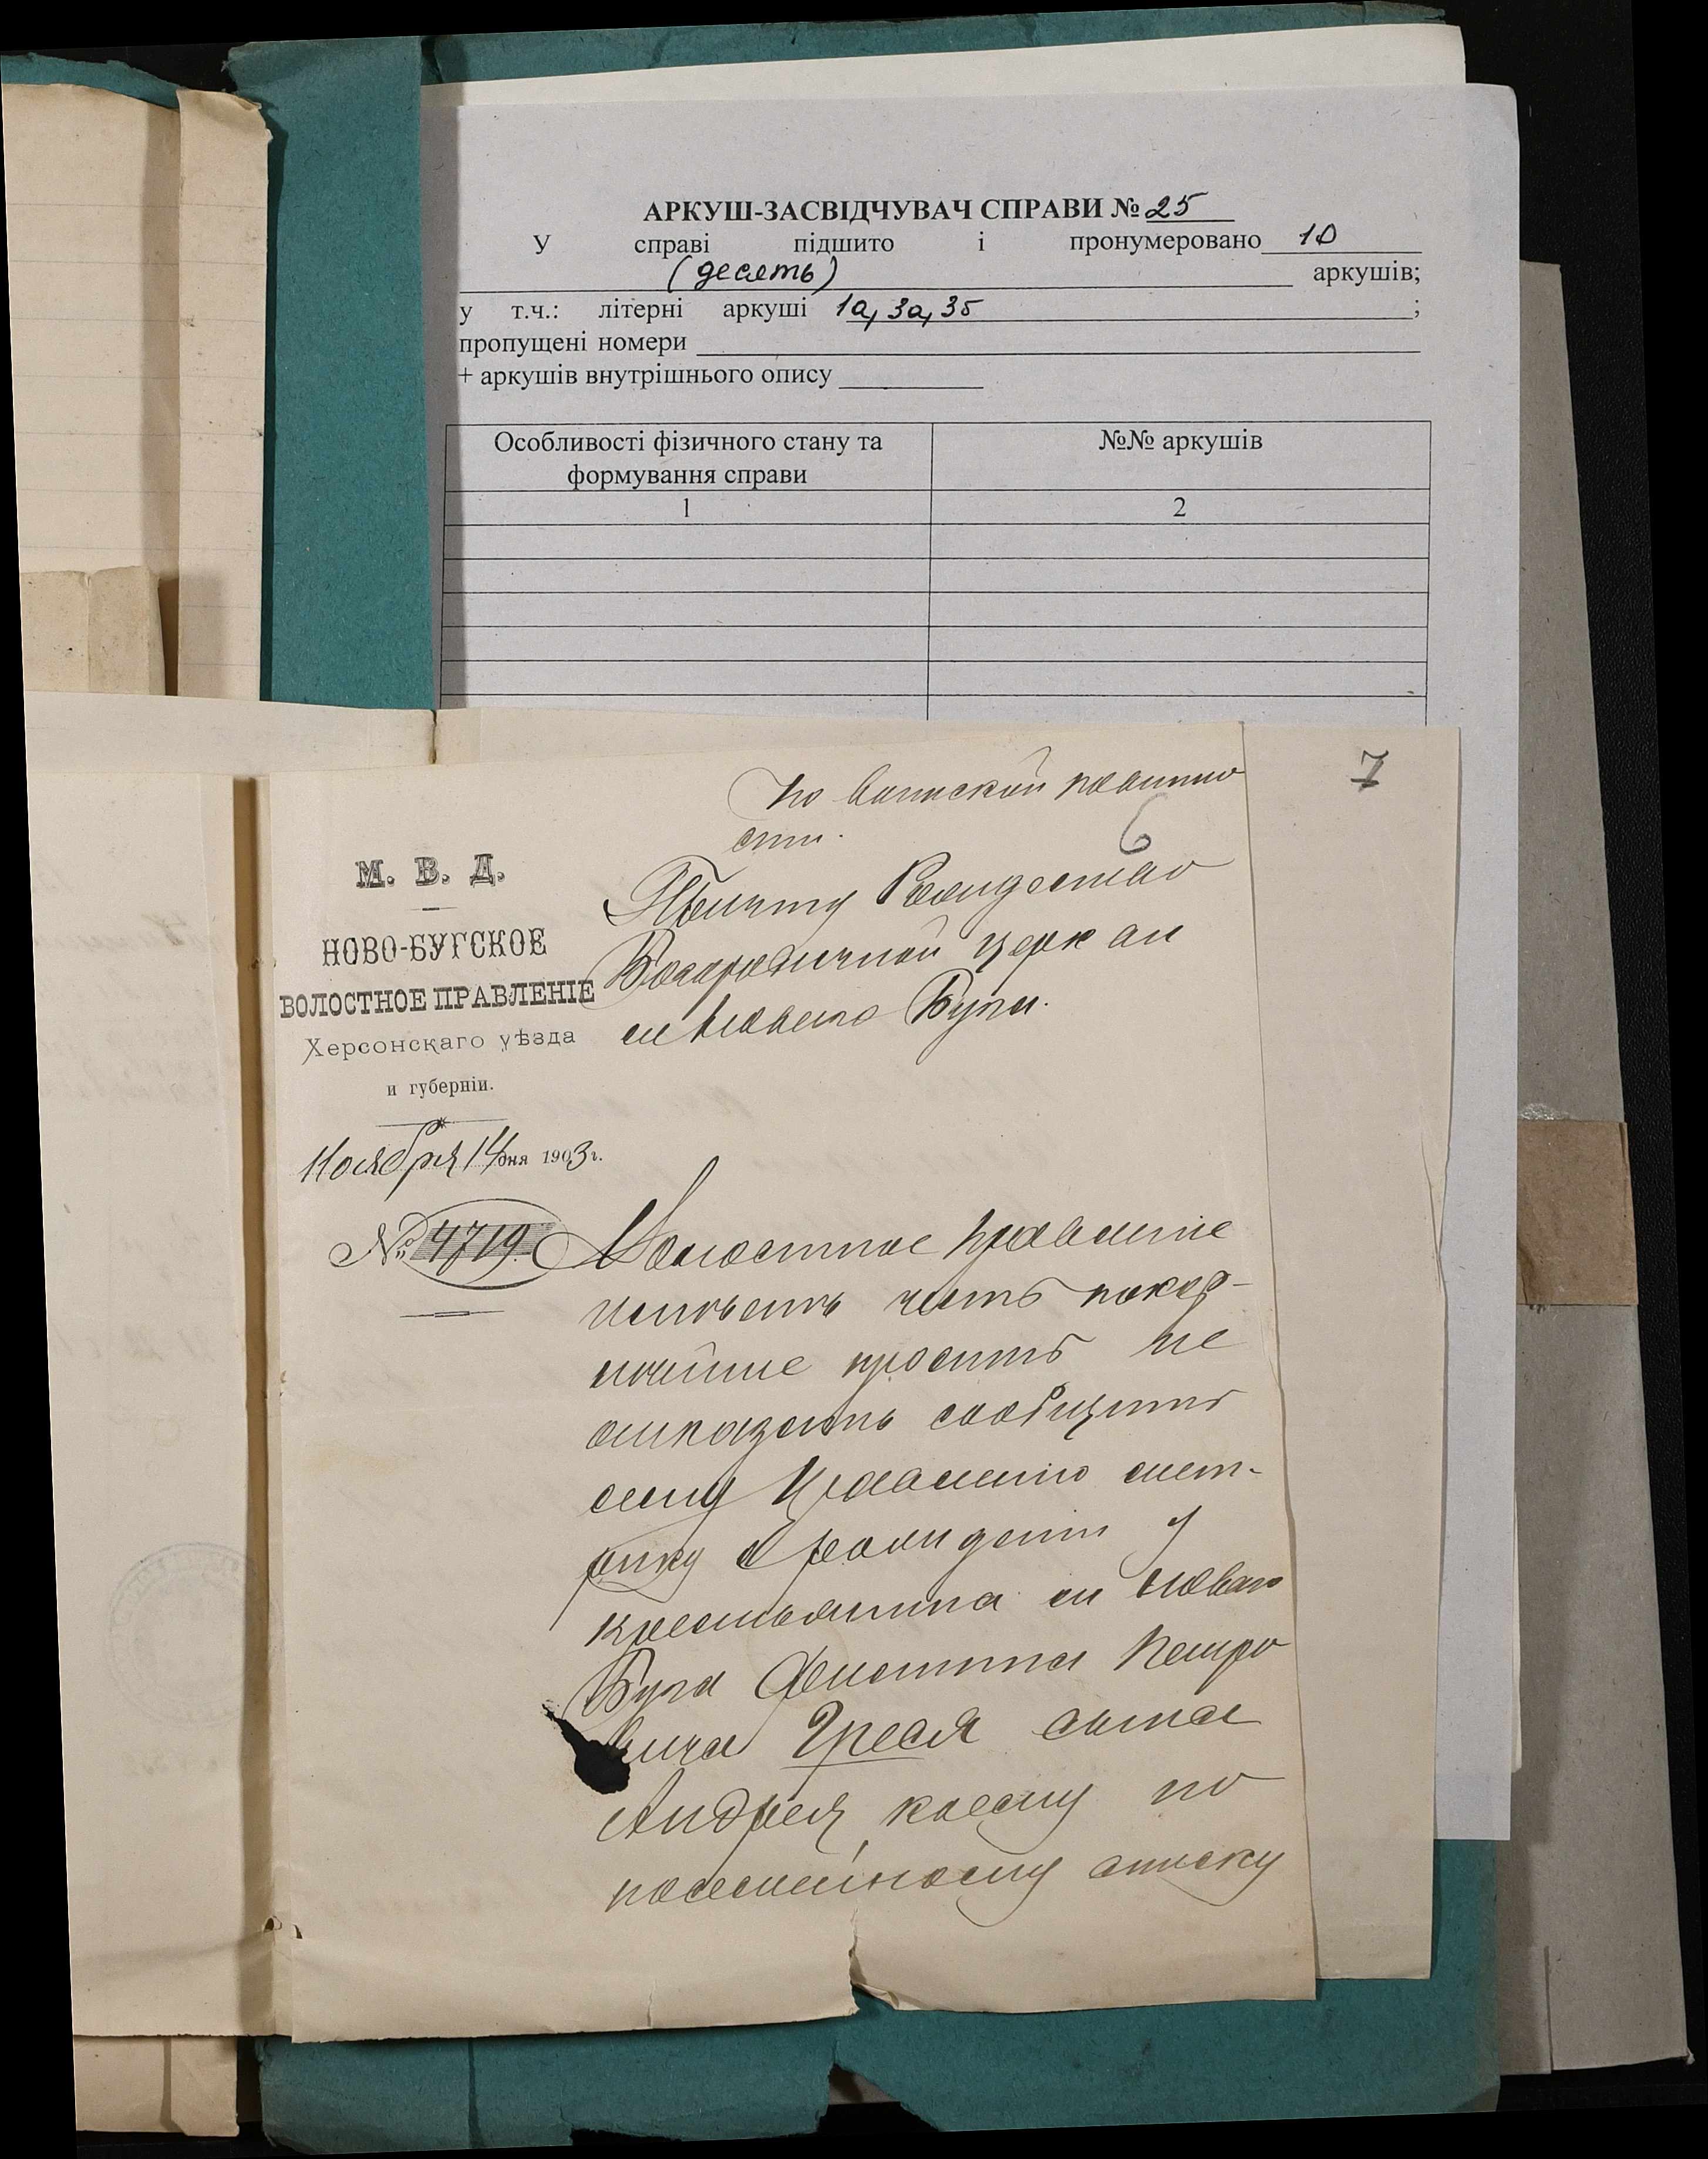 АРКУШ-ЗАСВІДЧУВАЧ СПРАВИ № 25
У справі підшито і пронумеровано 10
(десять) аркушів;
у т.ч.: літерні аркуші 1а, 3а, 3б ;
пропущені номери
+ аркушів внутрішнього опису
Особливості фізичного стану та формування справи
№№ аркушів
1
2
7
По воинской повинно
сти.
6
М. В. Д.
НОВО-БУГСКОЕ
ВОЛОСТНОЕ ПРАВЛЕНІЕ
Херсонскаго уѣзда
и губерніи.
Ноября 14 дня 1903 г.
№ 4719
Причту Рождество
Богородичной церкви
м Новаго Буга.
Волостное Правленіе
имѣетъ честь покор-
нѣйше проситъ не
отказать сообщить
сему Правленію мет-
рику о рожденіи у
крестьянина м Новаго
Буга Филиппа Петро
вича Греся сына
Андрея, коему по
посемейному списку